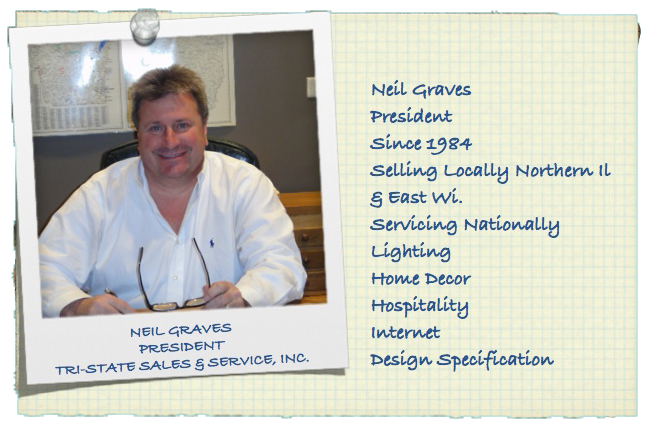 NEIL GRAVES
PRESIDENT
TRI-STATE SALES & SERVICE, INC.
Neil Graves
President
Since 1984
Selling Locally Northern Il
& East Wi.
Servicing Nationally
Lighting
Home Decor
Hospitality
Internet
Design Specification